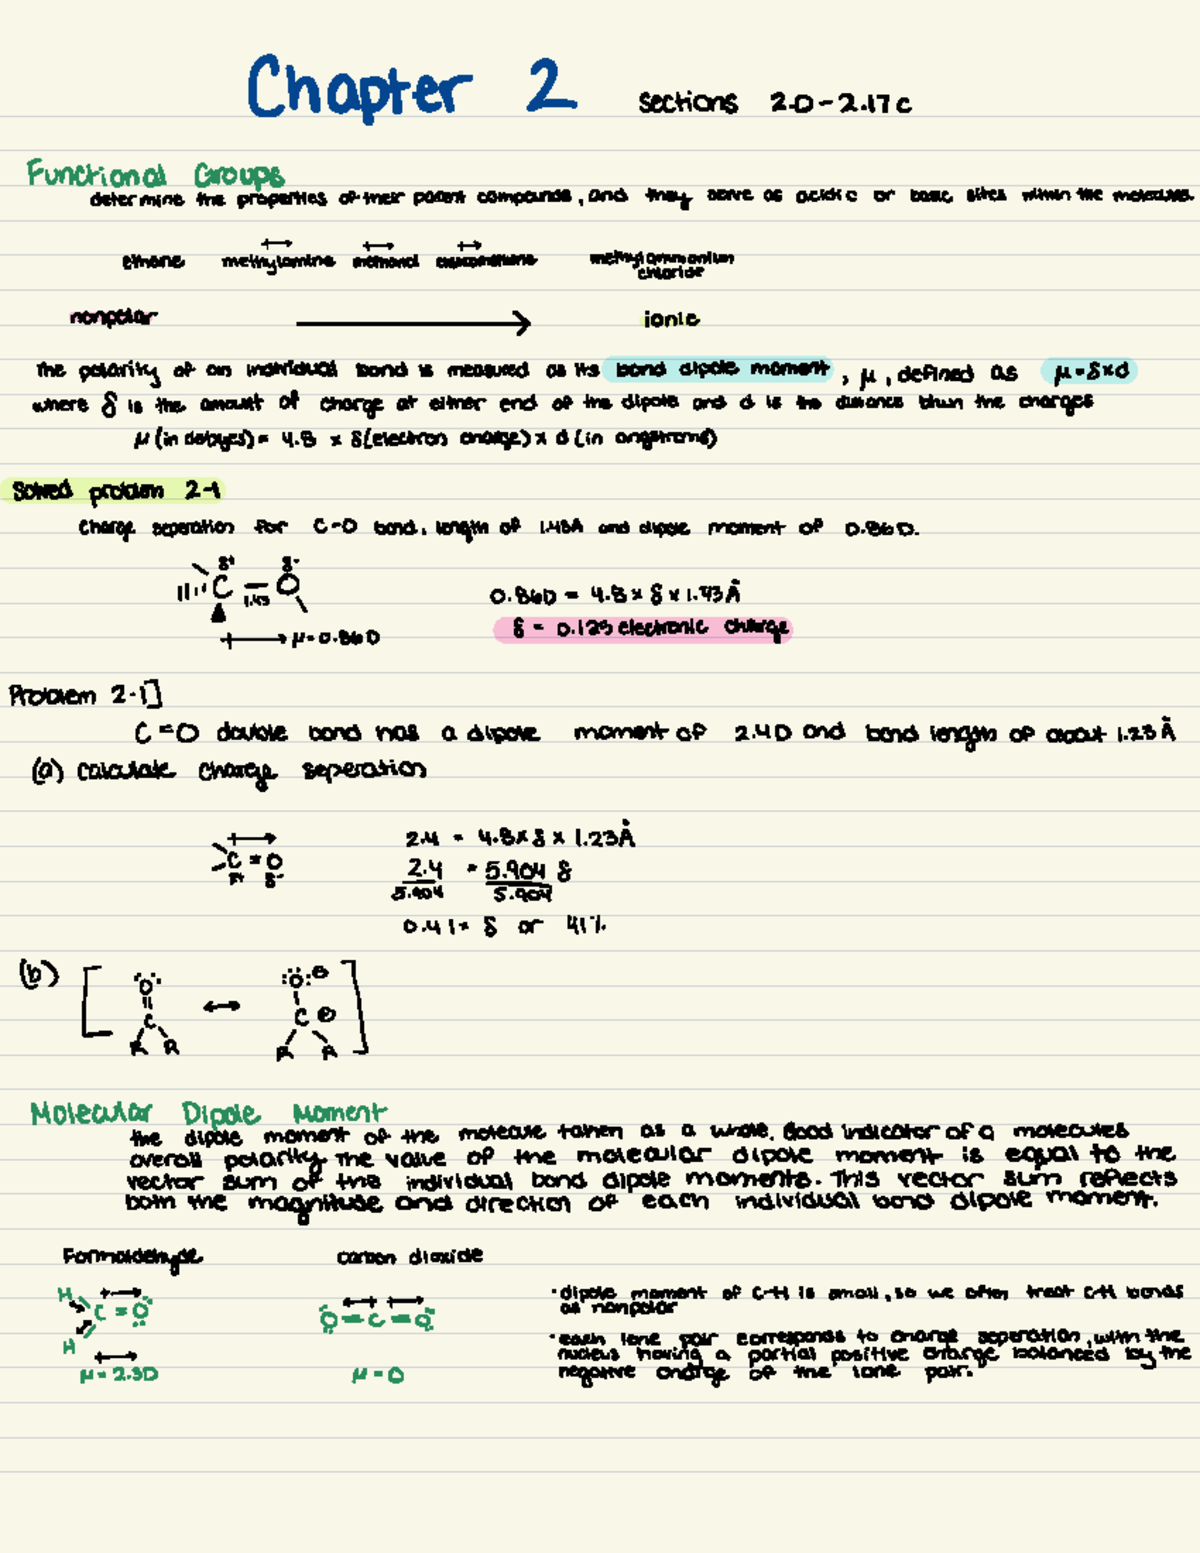 Chapter 2 Sections 2.0-2.17c
Functional Groups
determine the properties of their parent compounds, and they serve as acidic or basic sites within the molecules.
ethane methylamine methanol chloromethane methylammonium
chloride
nonpolar ⟶ ionic
The polarity of an individual bond is measured as its bond dipole moment, μ, defined as μ=δ×d
where δ is the amount of charge at either end of the dipole and d is the distance btwn the charges
μ (in debyes) = 4.8 × δ (electron charge) × d (in angstroms)
Solved problem 2-1
Charge seperation for C-O bond, length of 1.43Å and dipole moment of 0.86D.
δ+ δ-
C – O
1.43
μ = 0.86D
0.86D = 4.8 × δ × 1.43Å
δ = 0.125 electronic charge
Problem 2-1]
C=O double bond has a dipole moment of 2.4D and bond length of about 1.23Å
(a) calculate charge seperation
C=O
δ+ δ-
2.4 = 4.8 × δ × 1.23Å
2.4 = 5.904 δ
5.904 5.904
0.41 = δ or 41%
(b) [ :O: ↔ :O: ⊖ ]
C C ⊕
R R R R
Molecular Dipole Moment
the dipole moment of the molecule taken as a whole. Good indicator of a molecules
overall polarity. The value of the molecular dipole moment is equal to the
vector sum of the individual bond dipole moments. This vector sum reflects
both the magnitude and direction of each individual bond dipole moment.
Formaldehyde carbon dioxide
H
C=O
H
μ = 2.3D
O=C=O
μ = 0
• dipole moment of C-H is small, so we often treat C-H bonds
as nonpolar
• each lone pair corresponds to charge seperation, with the
nucleus having a partial positive charge balanced by the
negative charge of the lone pair.